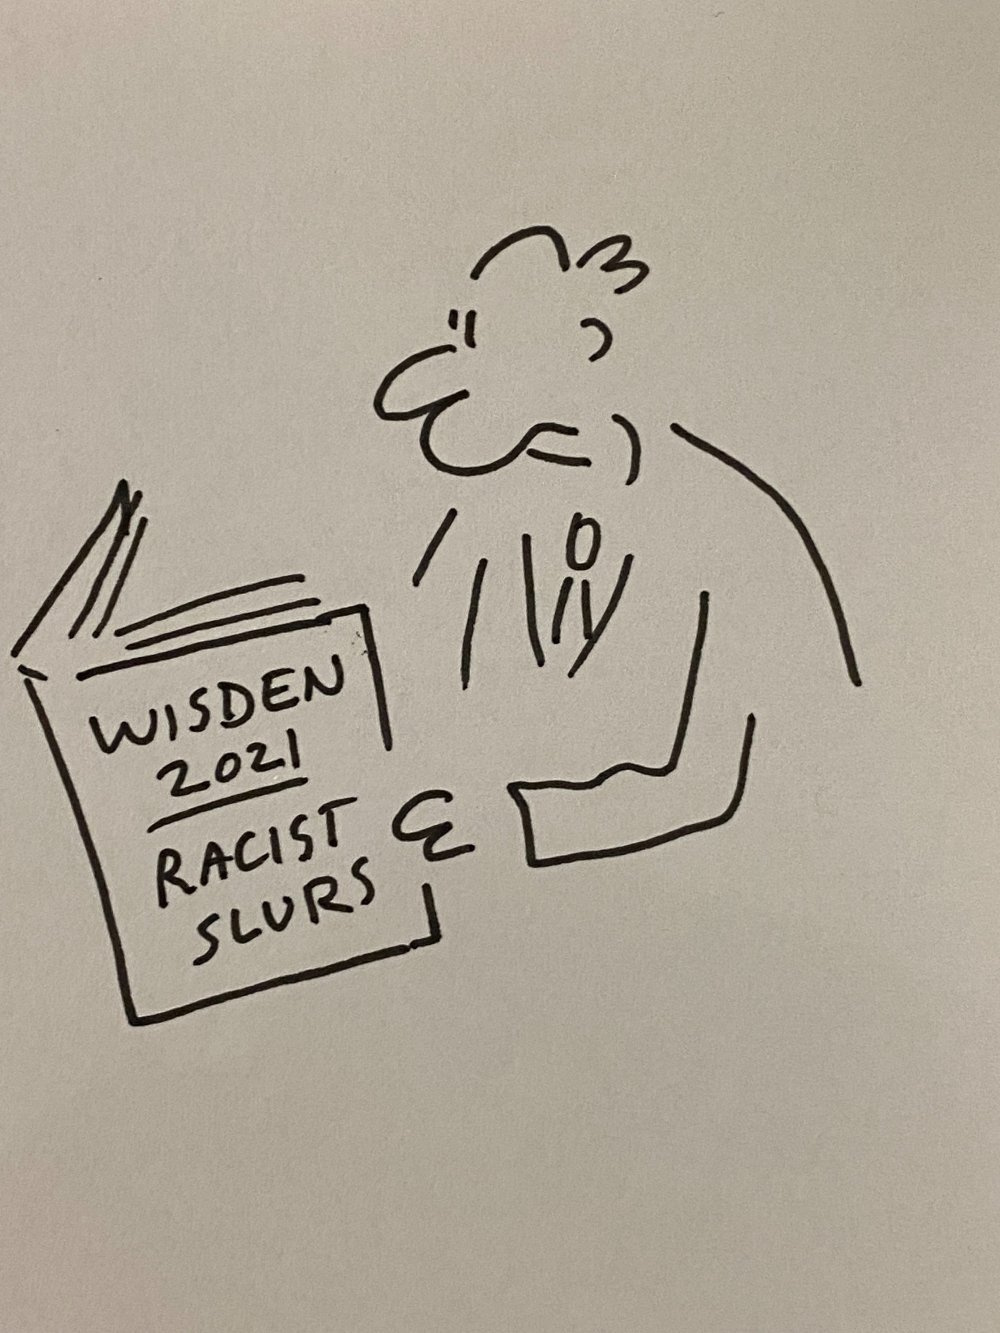 WISDEN
2021
RACIST
SLURS